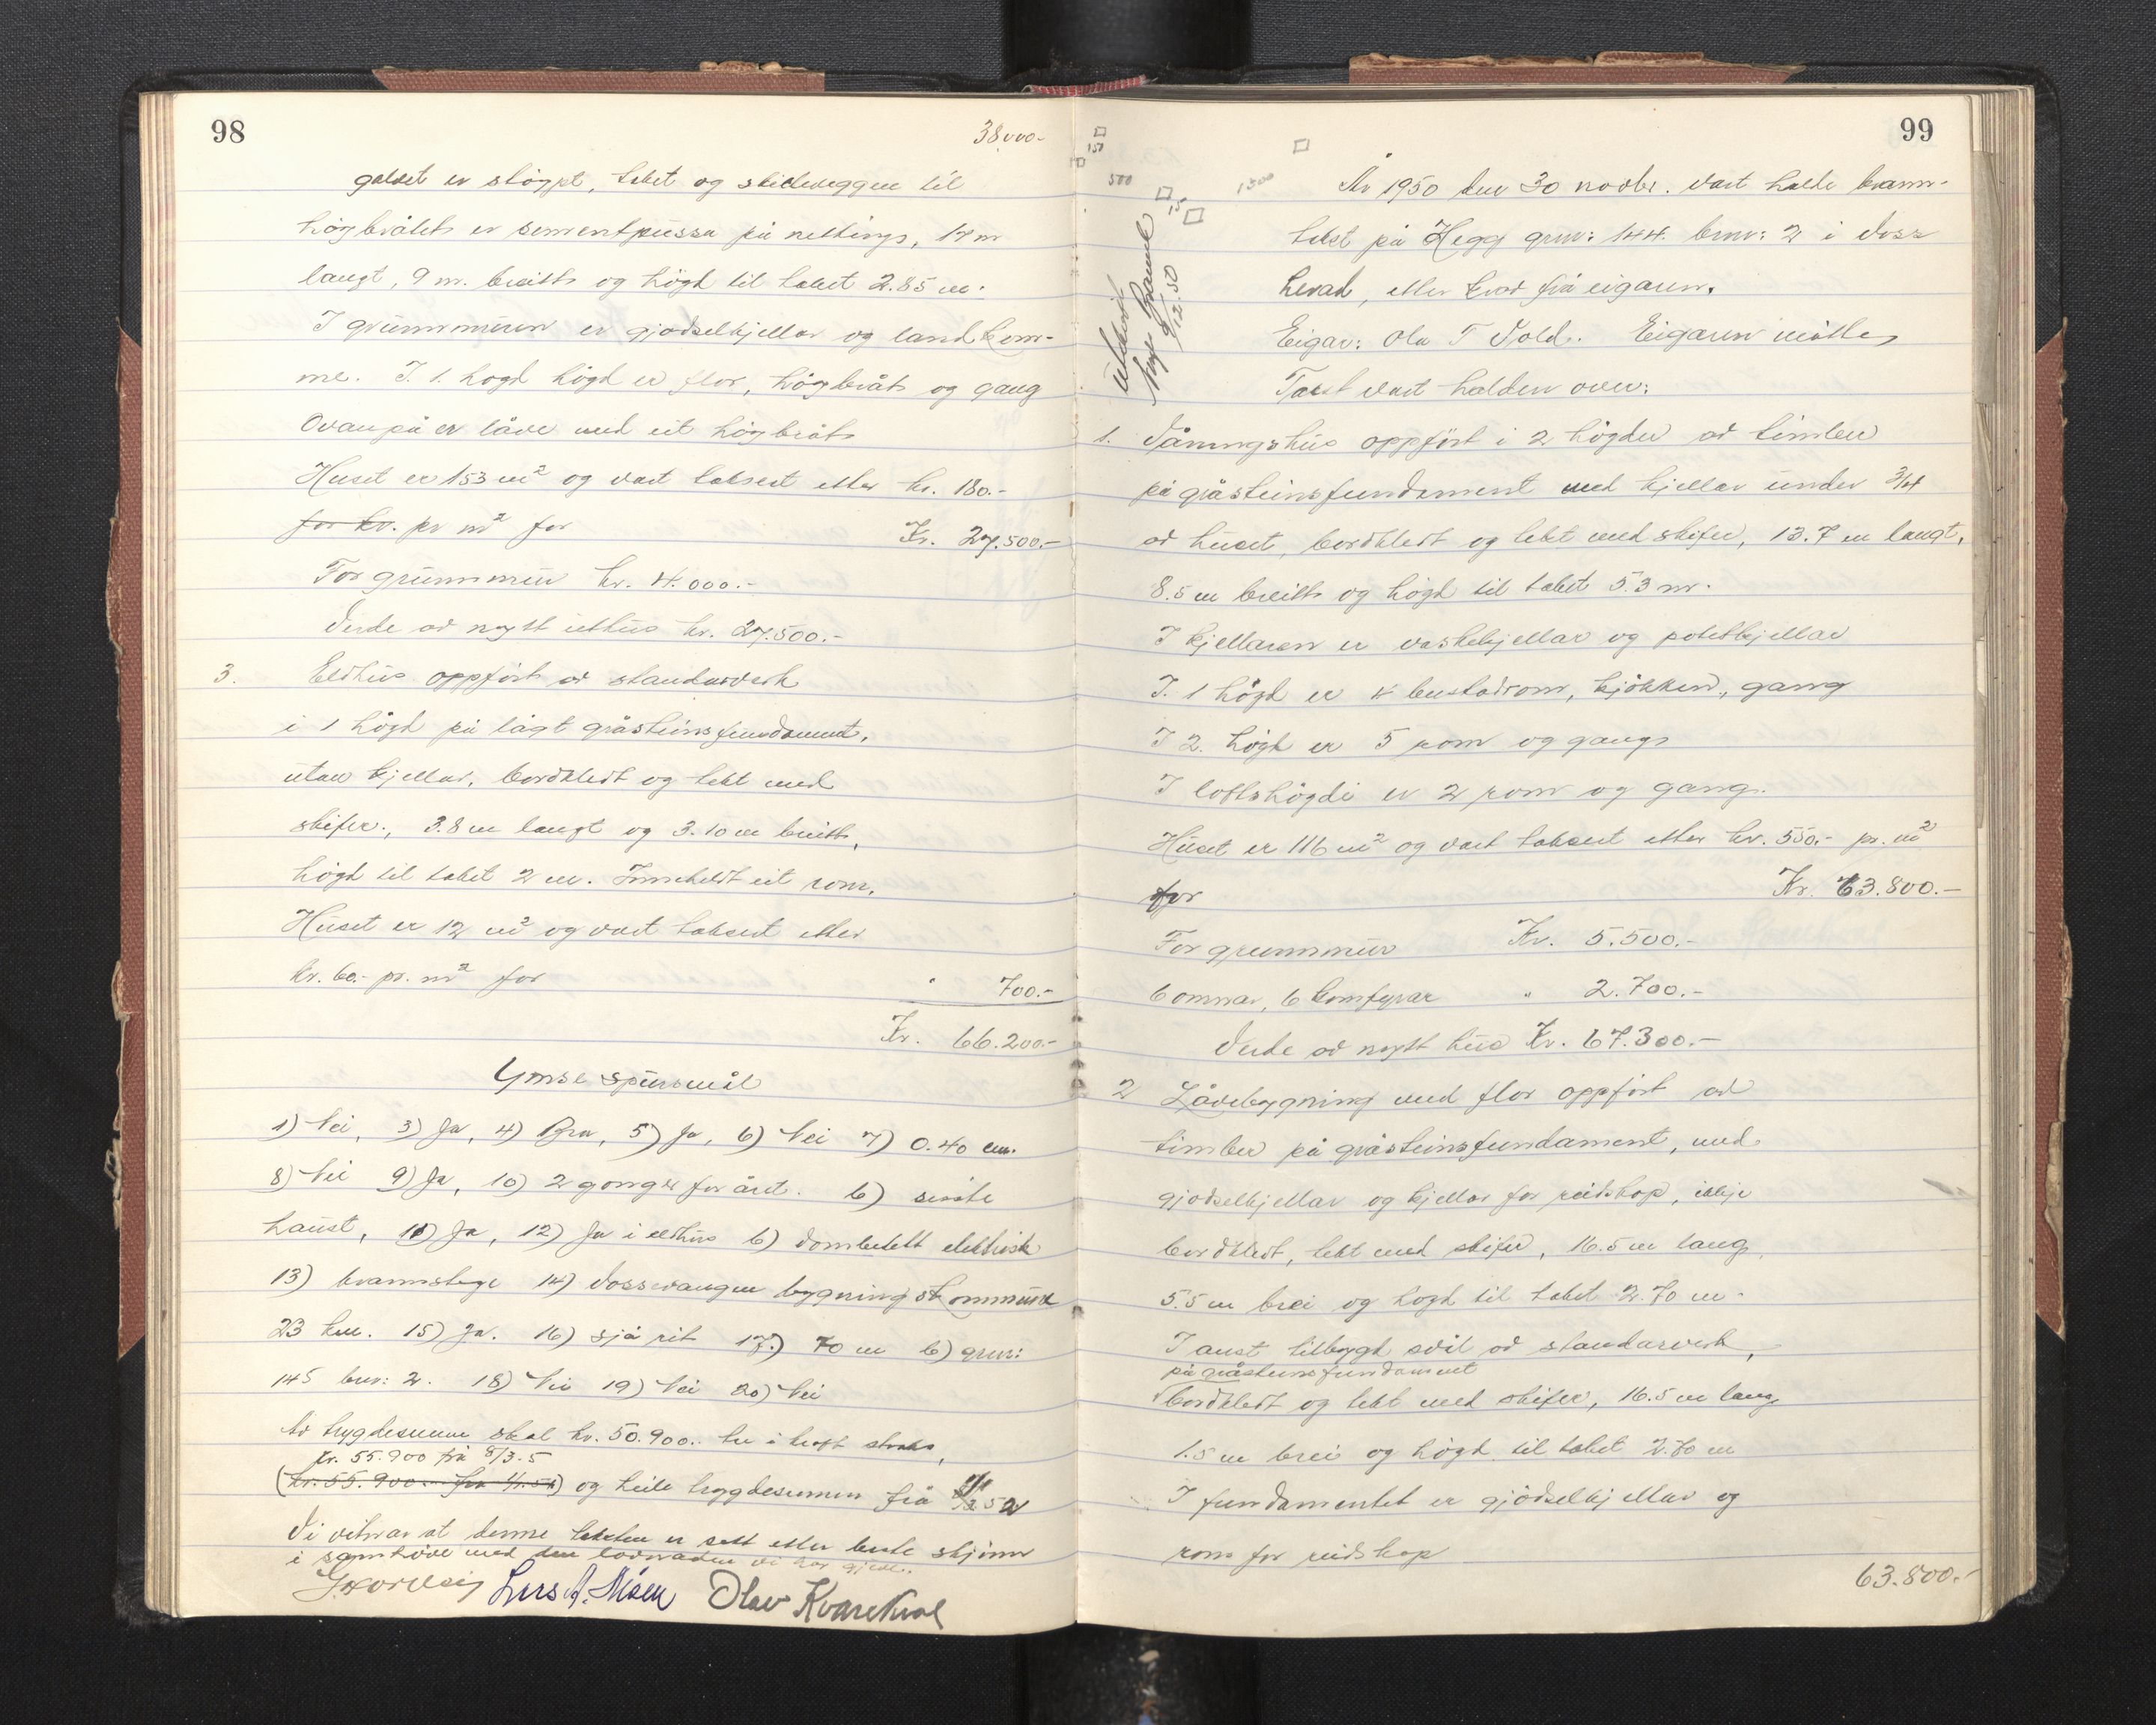 98
38000.-
golvet er støypt, taket og skilleveggen til
høybrålet er sementpussa på netting, 17 m
langt, 9 m. breitt og högd til taket 2.85 m.
I grunnmuren er gjødselkjellar og landkom-
me. I 1. hogd högd er flor, höybråt og gang
Ovanpå er låve med eit höybråt
Huset er 153 m² og vart taksert etter kr. 180.-
for kr. pr m² for Kr. 27.500.-
For grunnmur kr. 4.000.-
Verde av nytt uthus kr. 27.500.-
3. Eldhus oppfört av standarverk
i 1 högd på lågt gråsteinsfundament,
utan kjellar, bordkledt og tekt med
skifer, 3.8 m langt og 3.10 m breitt,
högd til taket 2 m. Inneheldt eit rom.
Huset er 12 m² og vart taksert etter
kr. 60.- pr. m² for " 700.-
Kr. 66.200.-
Ymse spursmål
1) Nei, 3) Ja, 4) Bra, 5) Ja, 6) Nei 7) 0.40 cm.
8) Nei 9) Ja, 10) 2 gonger for året. b) siste
haust, 11) Ja, 12) Ja i eldhus b) Vombedett elektrisk
13) brannstege 14) Vossevangen bygningskommune
23 km. 15) Ja. 16) sjå rit 17) 70 m b) grnr:
145 bnr: 2. 18) Nei 19) Nei 20) Nei
Av trygdesumm skal kr. 50.900.- tre i kraft straks,
kr. 55.900 frå 8/3.5
(kr. 55.900.- frå 1/1.51) og heile trygdesumen frå 1/1 52
Vi vitnar at denne taksten er sett etter beste skjönn
i samhöve med den lovnaden vi har gjeve.
Lars A. Móen Olav Kvarekval
99
500
150
15
1500
Utskrift
12.50
År 1950 den 30 novbr. vart halde brann-
takst på Hegg grnr: 144. bnr: 2 i Voss
herad, etter krav frå eigaren.
Eigar: Ola T Vold. Eigaren mötte
Takst vart halden over:
1. Våningshus oppfört i 2 högder av timber
på gråsteinsfundament med kjellar under 3/4
av huset, bordkledt og tekt med skifer, 13.7 m langt,
8.5 m breitt og högd til taket 5.3 m.
I kjellaren er vaskekjellar og potetkjellar
I. 1 högd er 4 bustadrom, kjökken, gang
I 2. högd er 5 rom og gang
I loftshögdi er 2 rom og gang.
Huset er 116 m² og vart taksert etter kr. 550.- pr. m²
for Kr. 63.800.-
For grunnmur Kr. 5.500.-
6 omnar, 6 komfyrar " 2.700.-
Verde av nytt hus Kr. 67.300.-
2 Låvebygning med flor oppfört av
timber på gråsteinsfundament, med
gjodselkjellar og kjellar for reidskap, ikkje
bordkledt, tekt med skifer, 16.5 m lang,
5.5 m brei og hogd til taket 2.70 m.
I aust tilbygd sval av standarverk,
på gråsteinsfundament
bordkledt og tekt med skifer, 16.5 m lang
1.5 m brei og högd til taket 2.70 m
I fundamentet er gjödselkjellar og
rom for reidskap
63.800.-